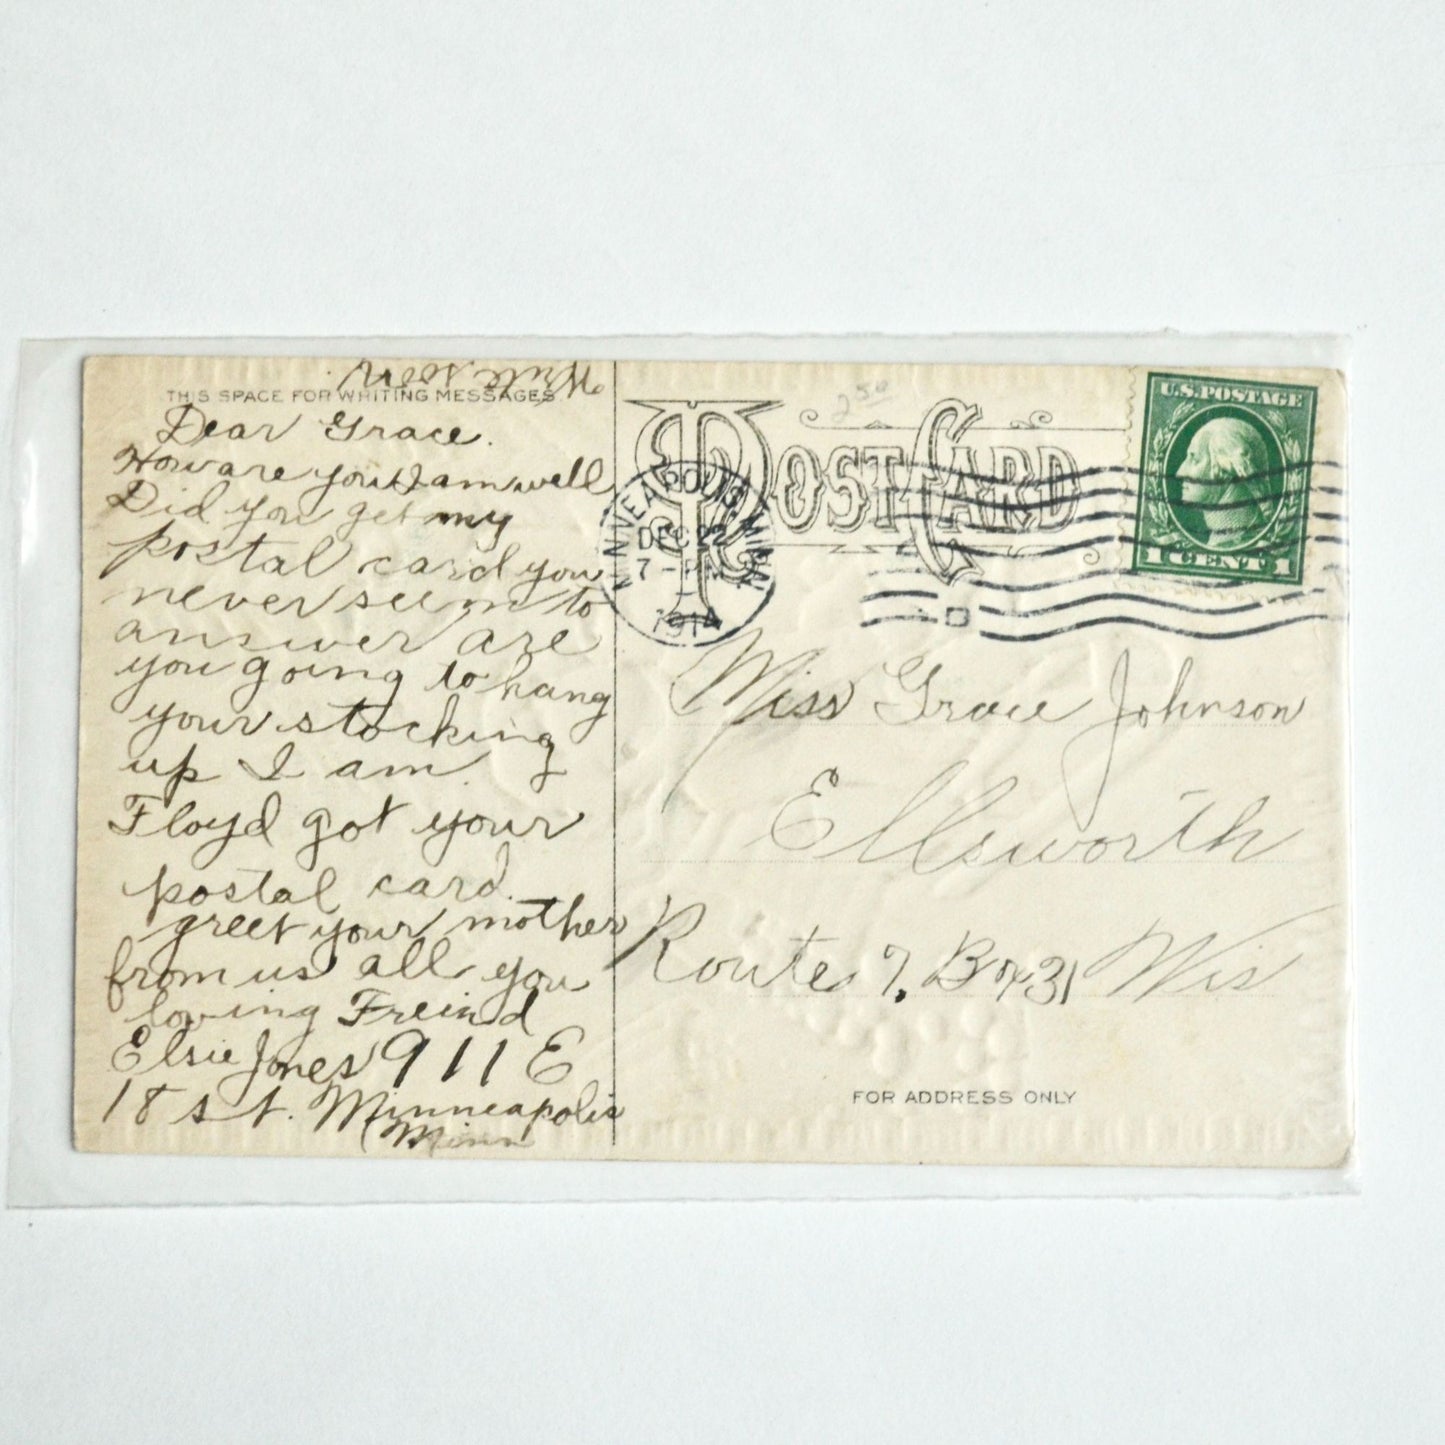 Write soon
THIS SPACE FOR WRITING MESSAGES.
Dear Grace.
How are you I am well
Did you get my
postal card you
never seem to
answer are
you going to hang
your stocking
up I am
Floyd got your
postal card.
greet your mother
from us all you
loving Freind
Elsie Jones 911 E
18 st. Minneapolis
Minn
POST CARD
2 50
MINNEAPOLIS, MINN.
DEC 22
7 - PM
1914
U.S. POSTAGE
1 CENT 1
Miss Grace Johnson
Ellsworth
Route 7. Bx 31 Wis
FOR ADDRESS ONLY